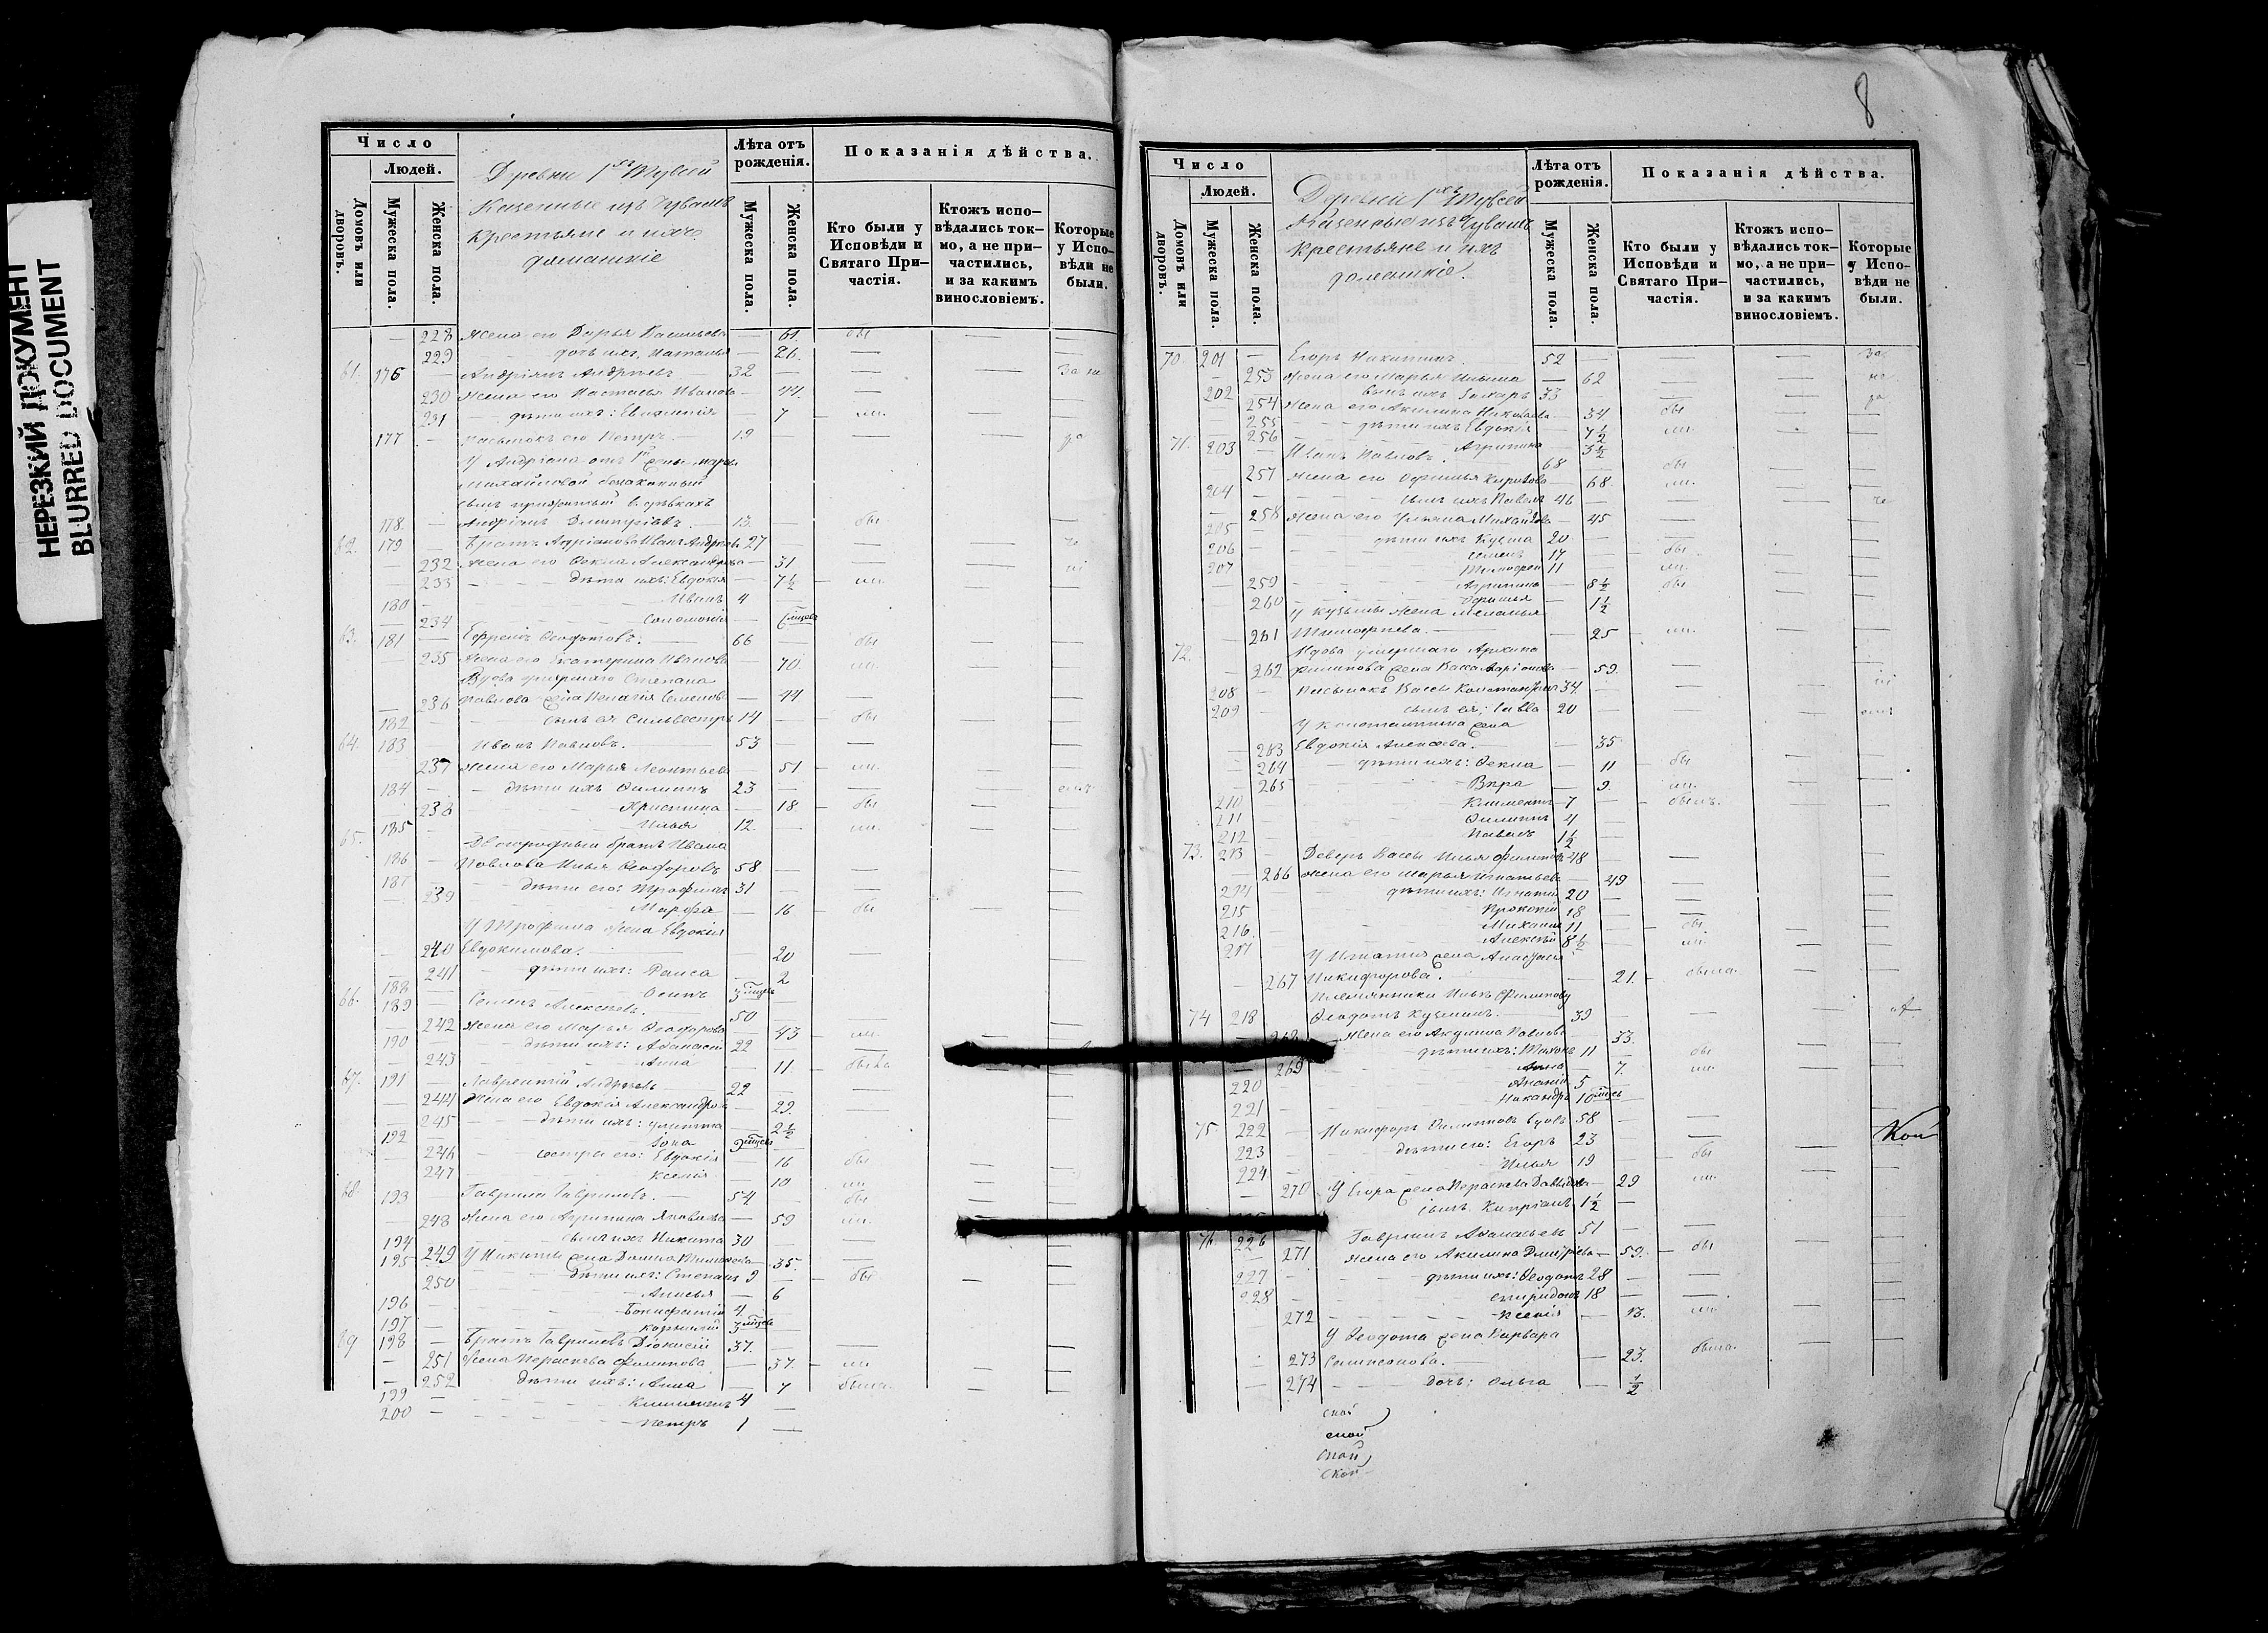 НЕРЕЗКИЙ ДОКУМЕНТ
BLURRED DOCUMENT
Число
Людей.
Домовъ или дворовъ.
Мужеска пола.
Женска пола.
Деревни 1хъ Тувсей
Казенные изъ Чувашъ
крестьяне и ихъ
домашніе
Лѣта отъ рожденія.
Мужеска пола.
Женска пола.
Показанія дѣйства.
Кто были у Исповѣди и Святаго Причастія.
Ктожъ исповѣдались токмо, а не причастились, и за какимъ винословіемъ.
Которые у Исповѣди не были.
— 228 Жена его Дарья Васильева — 61. бы
229 дочь ихъ, Наталья — 26.
61. 176 — Андріянъ Андреевъ 32 —
230 Жена его Настасья Иванова — 44.
231 дѣти ихъ: Евгенія — 7 ли.
177 — Пасынокъ его Петръ. 19
У Андріана отъ 1й жены Марьи
Михайловой беззаконный
сынъ прижитый въ дѣвкахъ
178. — Андріянъ Дмитріевъ. 13. бы
62. 179 — Братъ Адріановъ Иванъ Андреевъ 27 —
— 232 Жена его Фекла Александрова — 31
233 дѣти ихъ: Евдокія — 7½ ли.
180 — Иванъ 4
— 234 Соломонія —
63. 181 — Ефремъ 66 бы
— 235 Жена его Екатерина Иванова — 70. ли.
Вдова умершаго Степана
— 236 Павлова жена Пелагія Семенова — 44
182 сынъ ея Сильвестръ 14 — бы
64. 183 — Иванъ Павловъ. 53 —
237 Жена его Марья Леонтьева — 51 ли.
184 — дѣти ихъ Филиппъ 23 —
238 Христина — 18 бы
185 — Илья 12. ли.
65. Двоюродный братъ Ивана
186 — Павлова Илья Феодоровъ 58 —
187 — дѣти его: Трофимъ 31 —
— 239 Марфа — 16 бы
У Трофима жена Евдокія
— 240 Евдокимова. — 20
— 241 дѣти ихъ: Раиса — 2
188 — Осипъ 3 мѣсяца
66. 189 — Семенъ Алексѣевъ. 50
— 242 Жена его Марья Феодорова — 43 ли.
190 — дѣти ихъ: Афанасій 22 —
— 243 Анна — 11. былъ
67. 191 — Лаврентій Андреевъ 22 —
— 244 Жена его Евдокія Александрова — 29.
— 245 дѣти ихъ: Улитта — 2½
192 — Іона 9 мѣсяцъ
— 246 сестры его: Евдокія — 16 бы
— 247 Ксенія — 10 ли
68. 193 — Гаврила Гавриловъ. 54 — бы
— 248 Жена его Агрипина Яковлева — 59 ли.
194 — сынъ ихъ Никита 30 —
249 У Никиты жена Домна — 35.
195 — дѣти ихъ: Степанъ 9 — бы
250 Анисья — 6
196 — Бонифатій 4
197 — Корнилій 3 мѣсяца
69 198 — Братъ Гавриловъ Діонисій 37. —
— 251 Жена Параскева Филипова — 37. ли
— 252 дѣти ихъ: Анна — 7 была.
199 — Климентъ 4 —
200 — Петръ 1 —
8
Число
Людей.
Домовъ или дворовъ.
Мужеска пола.
Женска пола.
Деревни 1хъ Тувсей
Казенные изъ Чувашъ
крестьяне и ихъ
домашніе.
Лѣта отъ рожденія.
Мужеска пола.
Женска пола.
Показанія дѣйства.
Кто были у Исповѣди и Святаго Причастія.
Ктожъ исповѣдались токмо, а не причастились, и за какимъ винословіемъ.
Которые у Исповѣди не были.
70. 201 — Егоръ Никитинъ. 52 — за
253 Жена его Марья Ильина — 62 не
202 сынъ ихъ Захаръ 33
254 Жена его Акилина Николаева — 34. бы
255 дѣти ихъ Евдокія — 7½ ли.
256 Агрипина — 3½
71. 203 — Иванъ Павловъ. 68 — бы
257 Жена его Офимья Кирилова — 68. ли.
204 — сынъ ихъ Павелъ 46 —
258 Жена его Ульяна Михайлова — 45
205 — дѣти ихъ Кузьма 20 —
206 — Семенъ 17 — бы
207 Тимофей 11 — ли.
259 Агрипина — 8½ бы
260 Офимья — 1½
У Кузьмы жена Меланья
— 261 Тимофѣева. — 25 ли.
72. Вдова умершаго Архипа
— 262 Филипова жена Васса Ларіонова — 59.
208 — Пасынокъ Вассы Константинъ 34.
209 — сынъ ея; Савва 20 —
У Константина жена
— 263 Евдокія Алексѣева. — 35
— 264 дѣти ихъ: Фекла — 11 бы
— 265 Вѣра — 9. ли.
210 — Климентъ 7 — былъ.
211 — Филиппъ 4
212 — Павелъ 1½
73. 213 — Деверь Вассы Илья Филиповъ 48 —
— 266 Жена его Марья Игнатьева — 49
214 — дѣти ихъ: Игнатій 20 —
215 — Прокопій 18 —
216 — Михаилъ 11 — бы
217 — Алексѣй 8½ ли.
У Игнатія жена Анастасія
— 267 Никифорова. — 21. была.
Племянники Ильѣ Филипову
74 218 — Феодотъ Кузьминъ. 39 —
268 Жена его Акулина Павлова 33.
дѣти ихъ: Тихонъ 11 — бы
269 Анна 7. ли.
220 — Ананій 5 —
221 — Никандръ 10 мѣсяц
75. 222 — Никифоръ Филиповъ вдовъ 58 —
Кон
223 — дѣти его: Егоръ 23
224 — Илья 19 — бы
— 270 У Егора жена Параскева Давыдова — 29 ли.
сынъ. Кипріанъ 1½ —
76. 226 — Гаврилъ Афанасьевъ 51 —
— 271 Жена его Акилина Дмитріева — 59. бы
227 — дѣти ихъ: Феодотъ 28 —
228 — Спиридонъ 18 —
272 Ксенія — 13. ли.
У Феодота жена Варвара
— 273 Сампсонова. — 23. была.
— 274 дочь: Ольга — ½
ской
ской
ской
ской